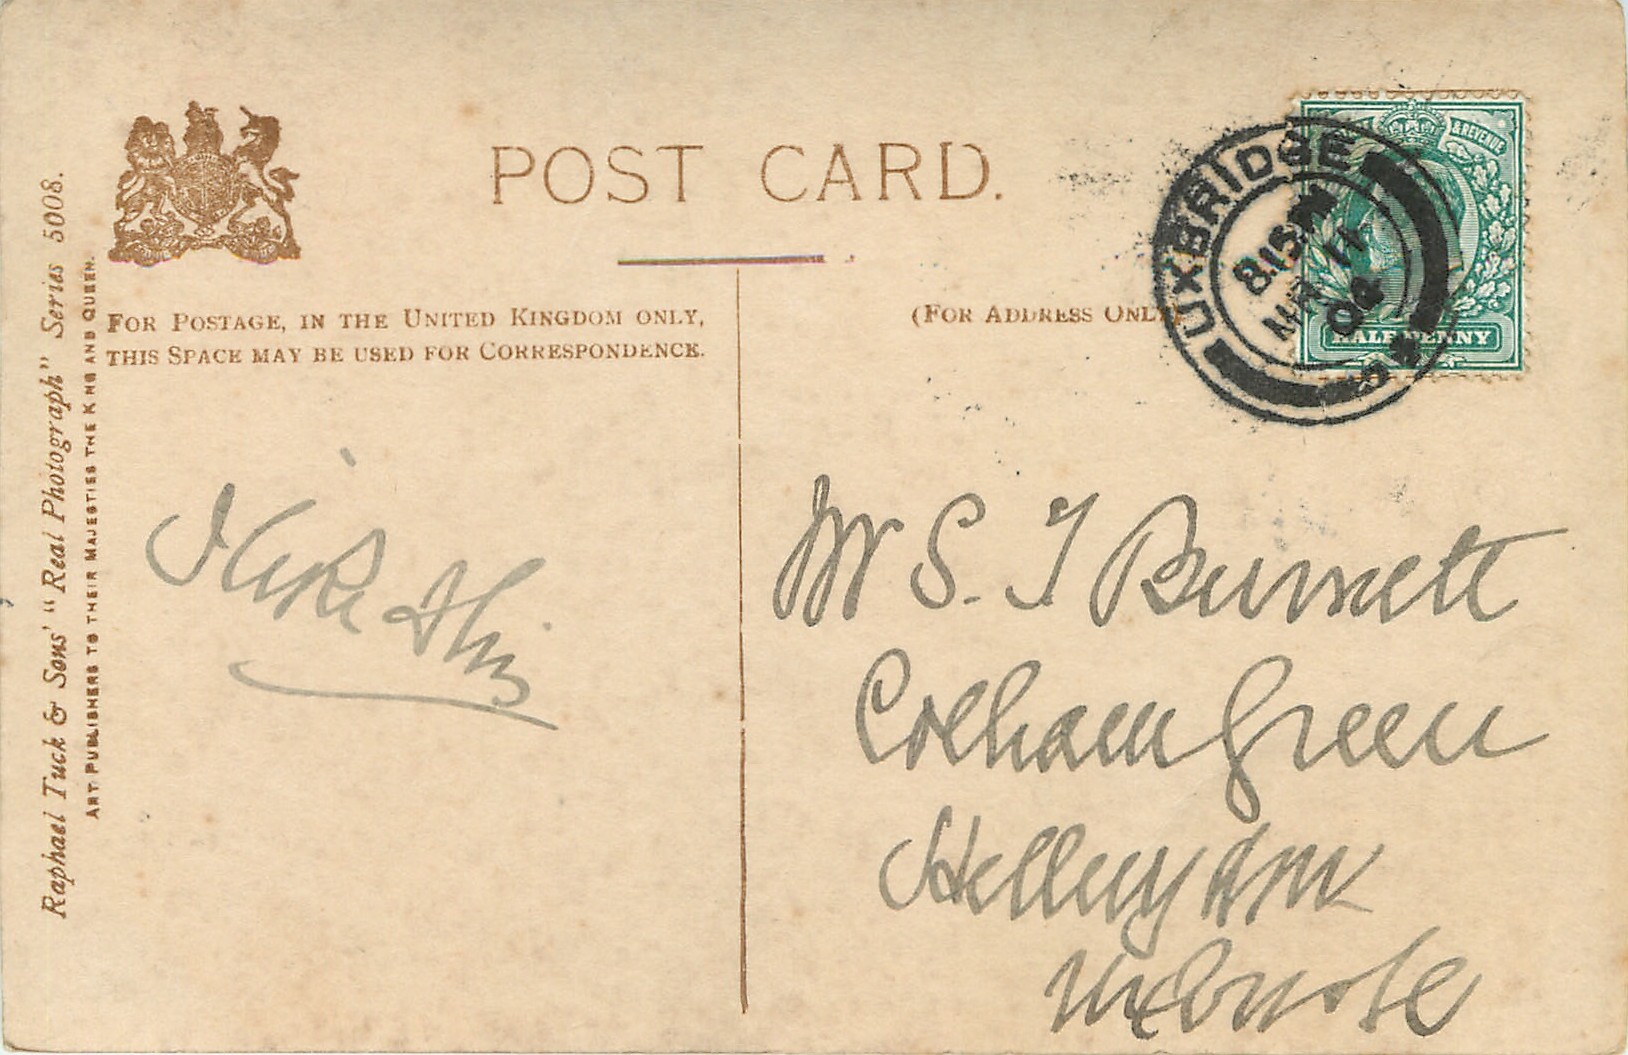 Raphael Tuck & Sons' "Real Photograph" Series 5008.
ART PUBLISHERS TO THEIR MAJESTIES THE KING AND QUEEN.
POST CARD.
FOR POSTAGE, IN THE UNITED KINGDOM ONLY,
THIS SPACE MAY BE USED FOR CORRESPONDENCE.
(FOR ADDRESS ONLY
& REVENUE
HALFPENNY
UXBRIDGE
8.15
MR 11
04
I like this
Mr S. J Burnett
Colham Green
Uxbridge